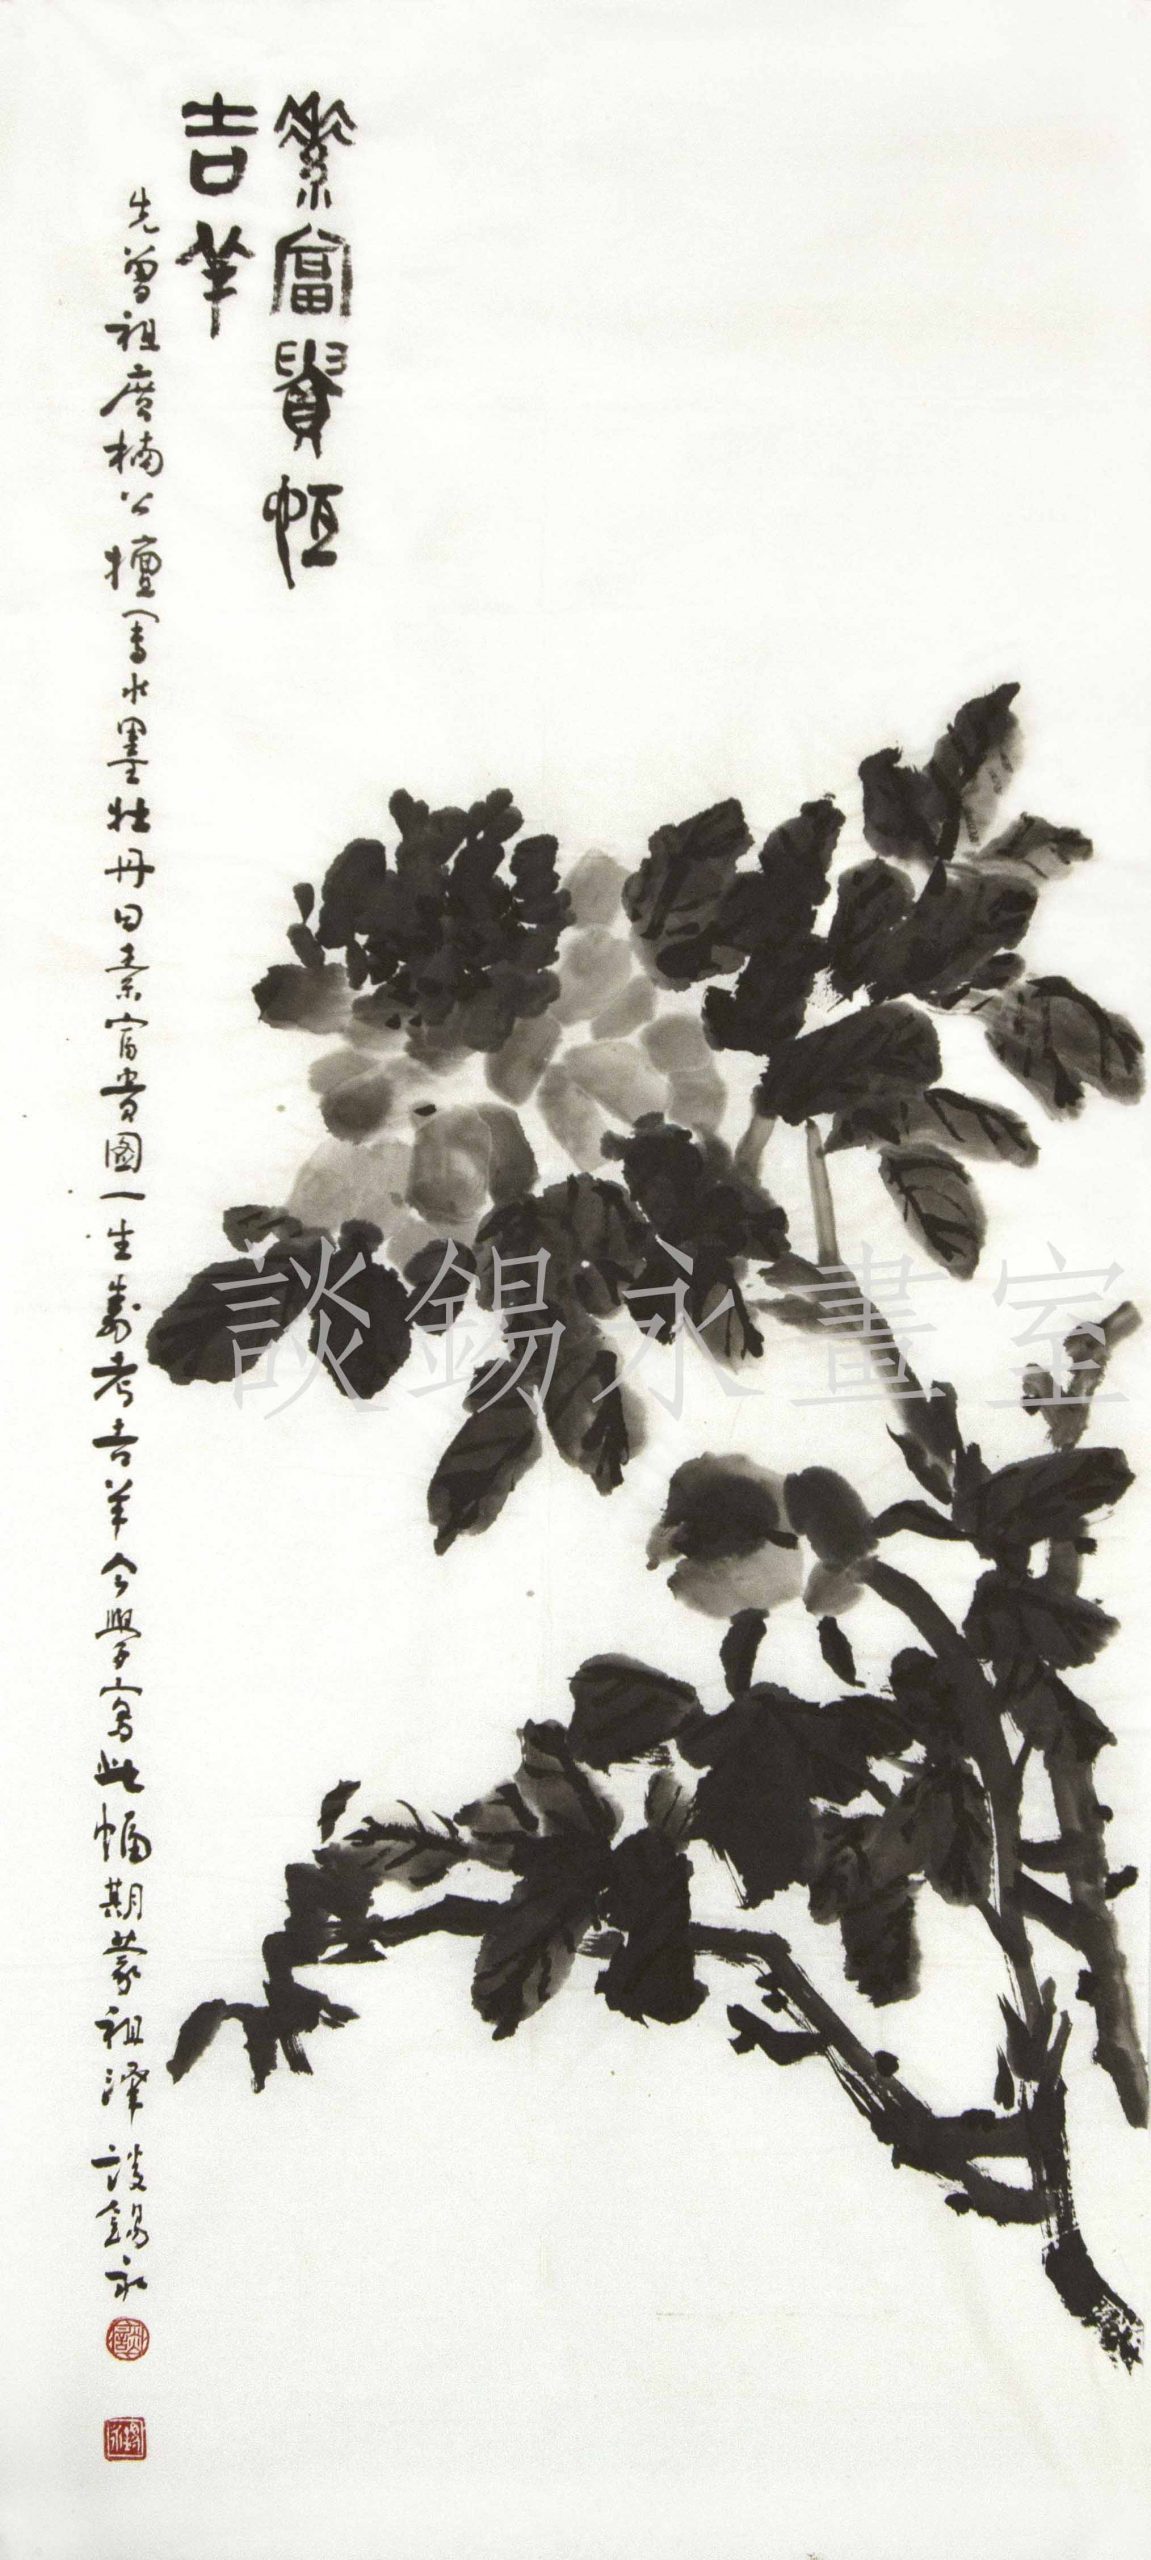 素富貴恒
吉羊
先曾祖廣楠公擅寫水墨牡丹曰素富貴圖一生壽考吉羊今學寫此幅期蒙祖澤 談錫永
談錫永畫室